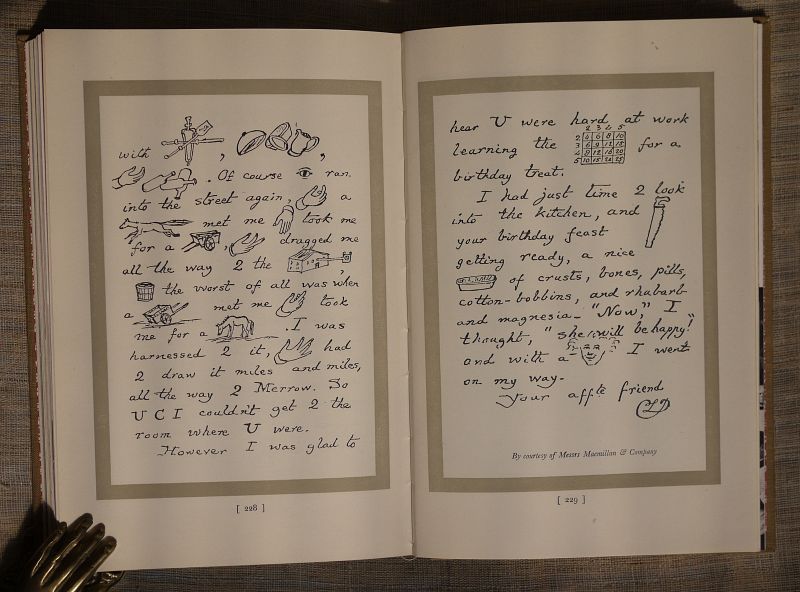 with , ,
. Of course ran
into the street again, a
met me took me
for a , dragged me
all the way 2 the ,
the worst of all was when
a met me took
me for a . I was
harnessed 2 it, had
2 draw it miles and miles,
all the way 2 Merrow. So
U C I couldn't get 2 the
room where U were.
However I was glad to
[ 228 ]
hear U were hard at work
learning the 2 3 4 5 for a
2 4 6 8 10
3 6 9 12 15
4 8 12 16 20
5 10 15 20 25
birthday treat.
I had just time 2 look
into the kitchen, and
your birthday feast
getting ready, a nice
of crusts, bones, pills,
cotton-bobbins, and rhubarb
and magnesia— "Now," I
thought, "she will be happy!"
and with a I went
on my way.
Your affte friend
CLD
By courtesy of Messrs Macmillan & Company
[ 229 ]